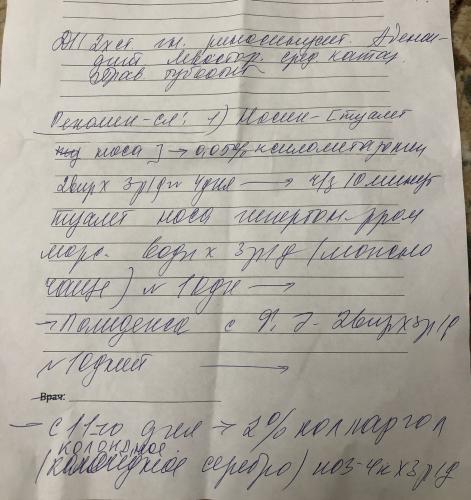 DП 2х ст. гн. риносинусит. Аденои-
дит левостор. сред. катар.
тубоотит
Рекомен-ся: 1) Носик - [туалет
носа] → 0,05% ксилометазолин
2 впр х 3 р/д № 4 дня → ч/з 10 минут
туалет носа гипертон. р-ром
морс. воды х 3 р/д (можно
чаще) № 10 дн →
→ Полидекса с Ф. Э - 2 впр х 3 р/д
№ 10 дней →
Врач:
→ с 11-го дня → 2% колларгол
коллоидное
(серебро) по 3-4 к х 3 р/д